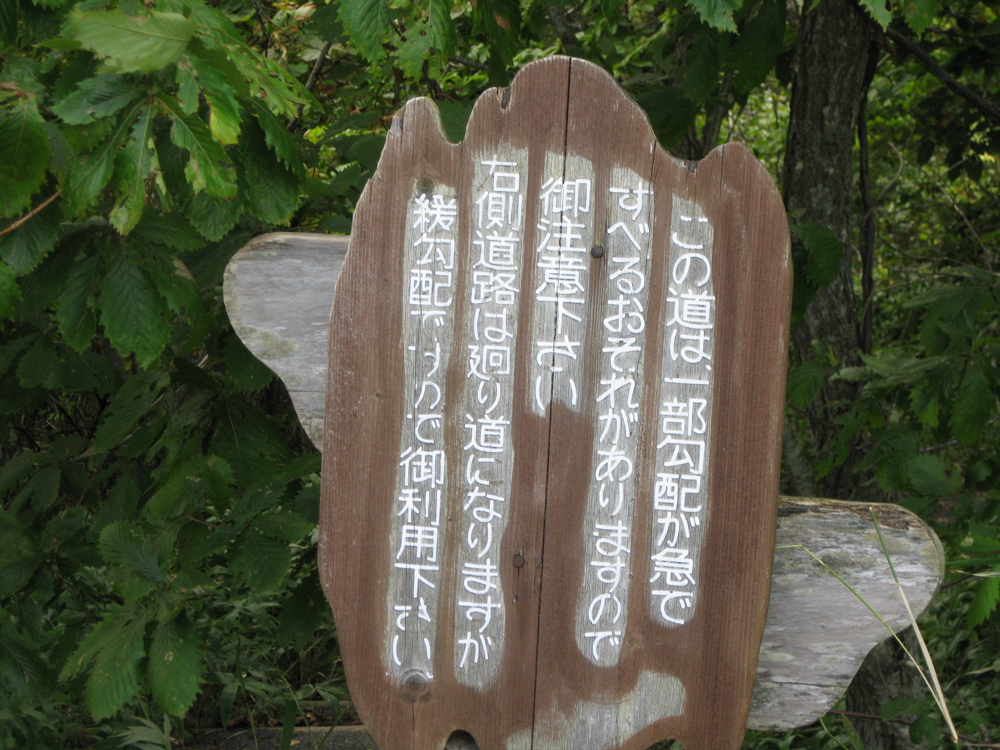 この道は、一部勾配が急で
すべるおそれがありますので
御注意下さい
右側道路は廻り道になりますが
緩勾配ですので御利用下さい